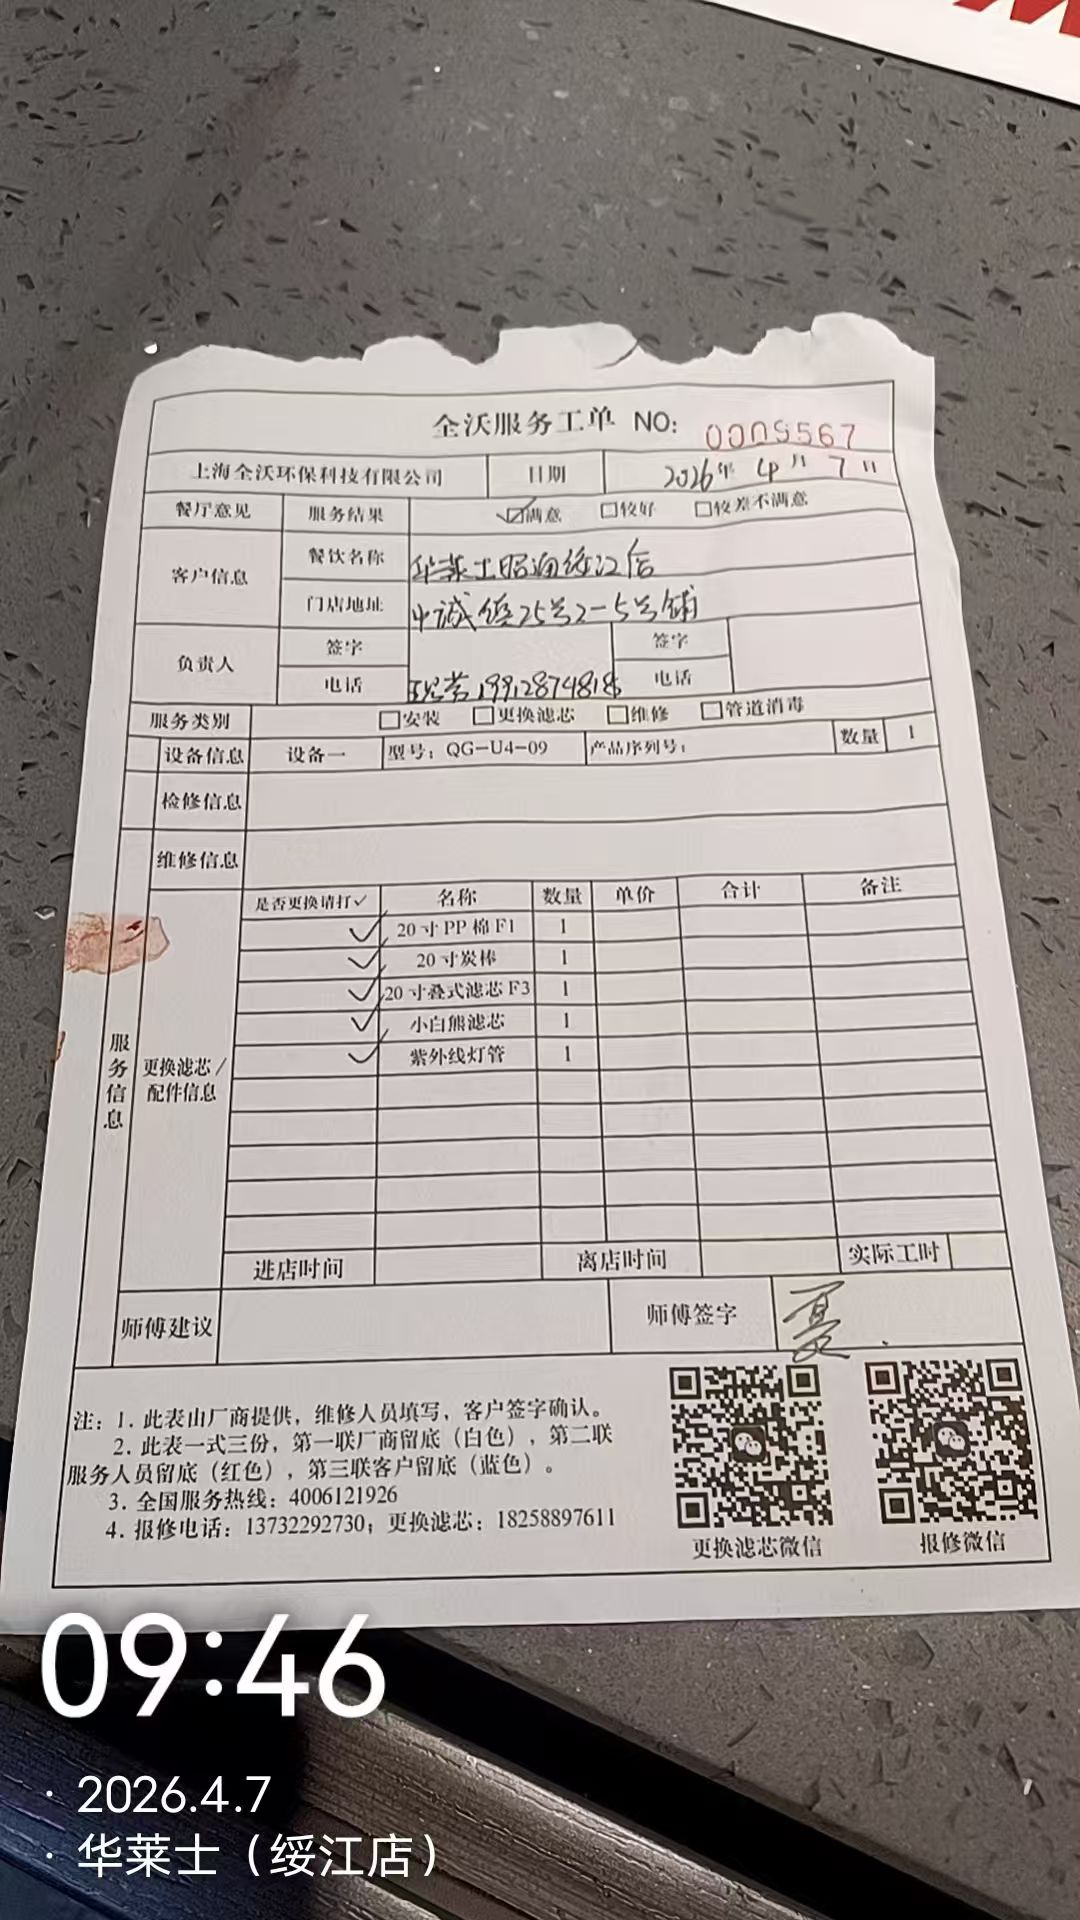 全沃服务工单 NO: 0009567
上海全沃环保科技有限公司 日期 2026年 4月 7日
餐厅意见 服务结果 ☑满意 □较好 □较差不满意
客户信息 餐饮名称 华莱士昭通绥江店
门店地址 中诚镇25号2-5号铺
负责人 签字 签字
电话 19912874818 电话
服务类别 □安装 □更换滤芯 □维修 □管道消毒
设备信息 设备一 型号：QG-U4-09 产品序列号： 数量 1
检修信息
维修信息
服务信息
更换滤芯/配件信息
是否更换请打✓ 名称 数量 单价 合计 备注
✓ 20寸PP棉F1 1
✓ 20寸炭棒 1
✓ 20寸叠式滤芯F3 1
✓ 小白熊滤芯 1
✓ 紫外线灯管 1
进店时间 离店时间 实际工时
师傅建议 师傅签字 夏
注：1. 此表由厂商提供，维修人员填写，客户签字确认。
2. 此表一式三份，第一联厂商留底（白色），第二联
服务人员留底（红色），第三联客户留底（蓝色）。
3. 全国服务热线：4006121926
4. 报修电话：13732292730；更换滤芯：18258897611
更换滤芯微信 报修微信
09:46
· 2026.4.7
· 华莱士（绥江店）